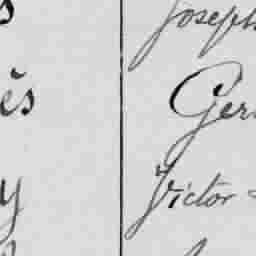 Joseph
ès
Ger
y
Victor